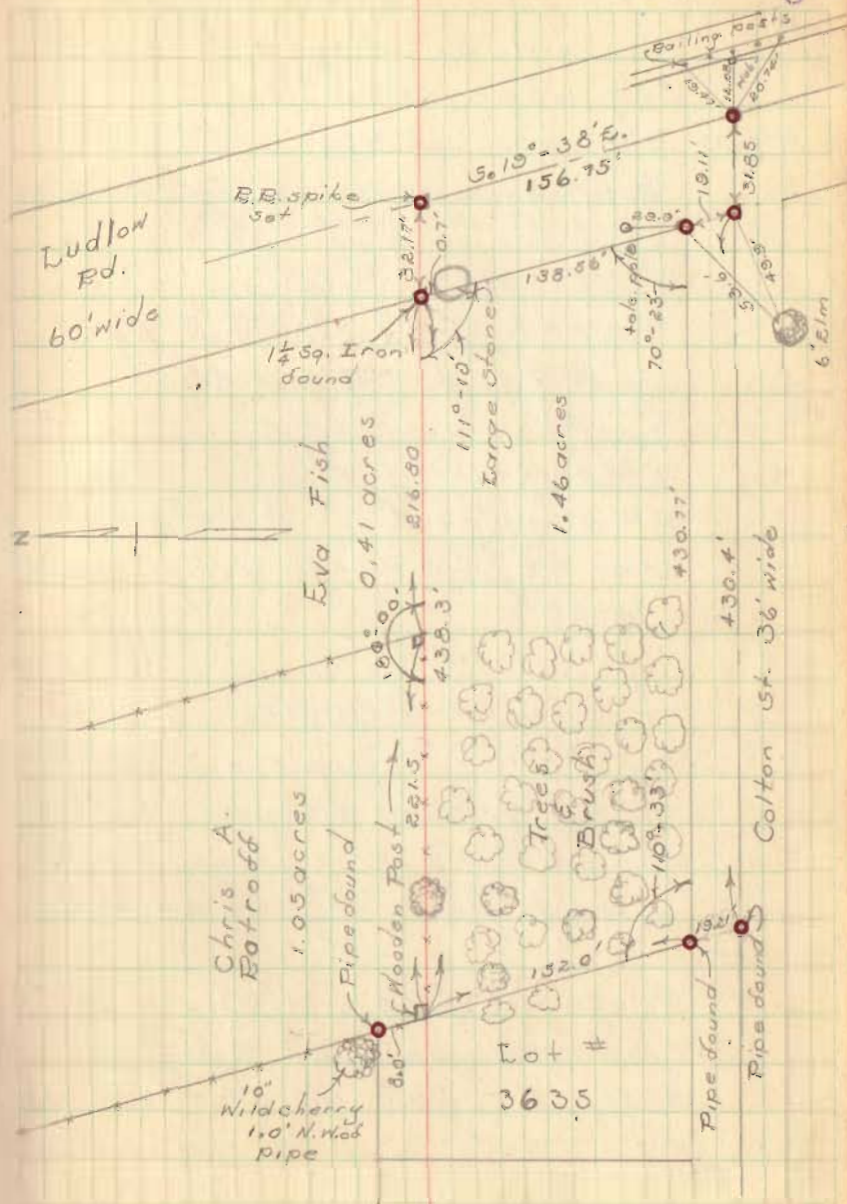 Railing Posts
19.47'
14.08'
20.72'
S. 19°-38'E.
156.95'
R.R. spike
set
Ludlow
Rd.
60' wide
32.17'
0.7'
19.11'
31.85
20.0'
tele. pole
138.56'
70°-23'
49.9'
6' Elm
1 1/4 Sq. Iron
found
111°-10'
Large Stones
N
Eva Fish
0.41 acres
216.80
1.46 acres
180°-00'
438.3'
430.77'
430.4'
Colton St. 36' wide
Chris A.
Batroff
1.05 acres
Pipe found
Wooden Post
221.5
Trees
&
Brush
110°-33'
8.0'
152.0'
19.21'
10"
Wildcherry
1.0' N.W. of
pipe
Lot #
3635
Pipe found
Pipe found